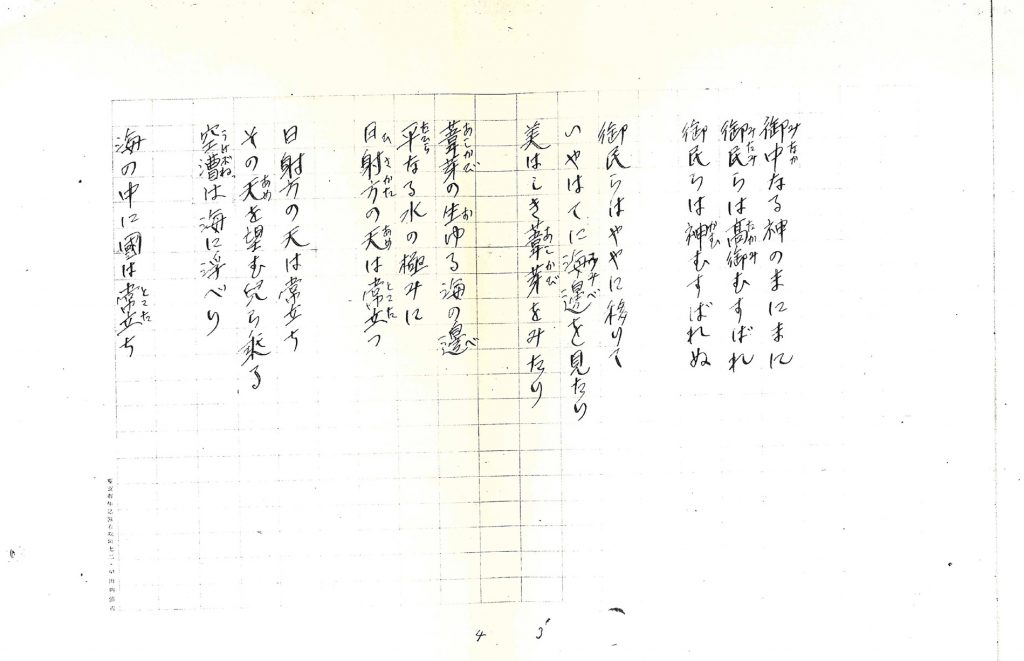 御中なる神のまにまに
御民らは髙御むすばれ
御民らは神むすばれぬ
御民らはやゝに移りて
いやはてに海邊を見たり
美はしき葦芽をみたり
葦芽の生ゆる海の邊
平なる水の極みに
日射方の天は常立つ
日射方の天は常立ち
その天を望む兒ら乘る
空漕は海に浮べり
海の中に國は常立ち
3
4